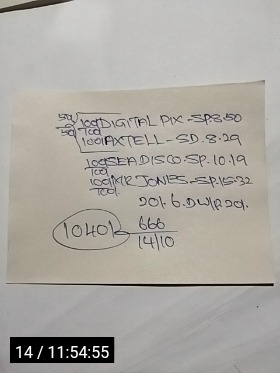 50/ 100/ DIGITAL PIX - SP.8.50
50/ 100/
100/ AXTELL - SD.8.29
100/ SEA DISCO. SP. 10.19
100/
100/ MR JONES - SP. 15.32
100/.
20/. 6. DW/R 20/.
1040/ 666
14/10
14 / 11:54:55